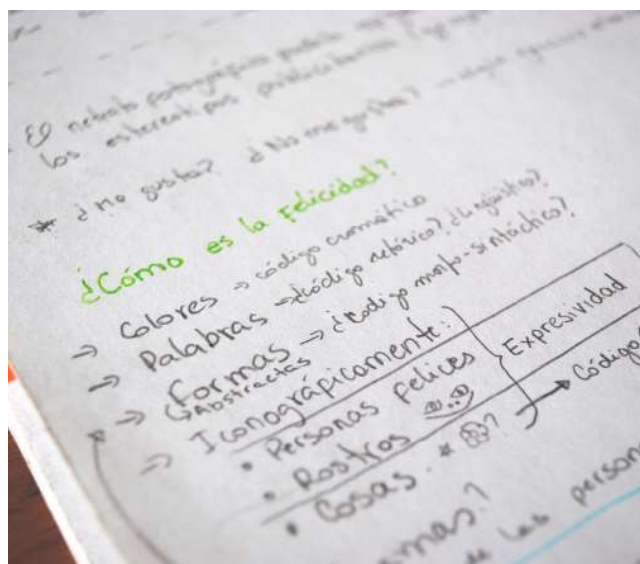 El retrato fotográfico
los estereotipos publicitarios
* ¿Me gusta? ¿No me gusta?
¿Cómo es la Felicidad?
→ Colores → código cromático
→ Palabras → ¿código retórico? ¿Lingüístico?
→ Formas → ¿código morfo-sintáctico?
Abstractas
→ Iconográficamente:
• Personas felices
• Rostros
Expresividad
• Cosas. * ? → Código
de las person